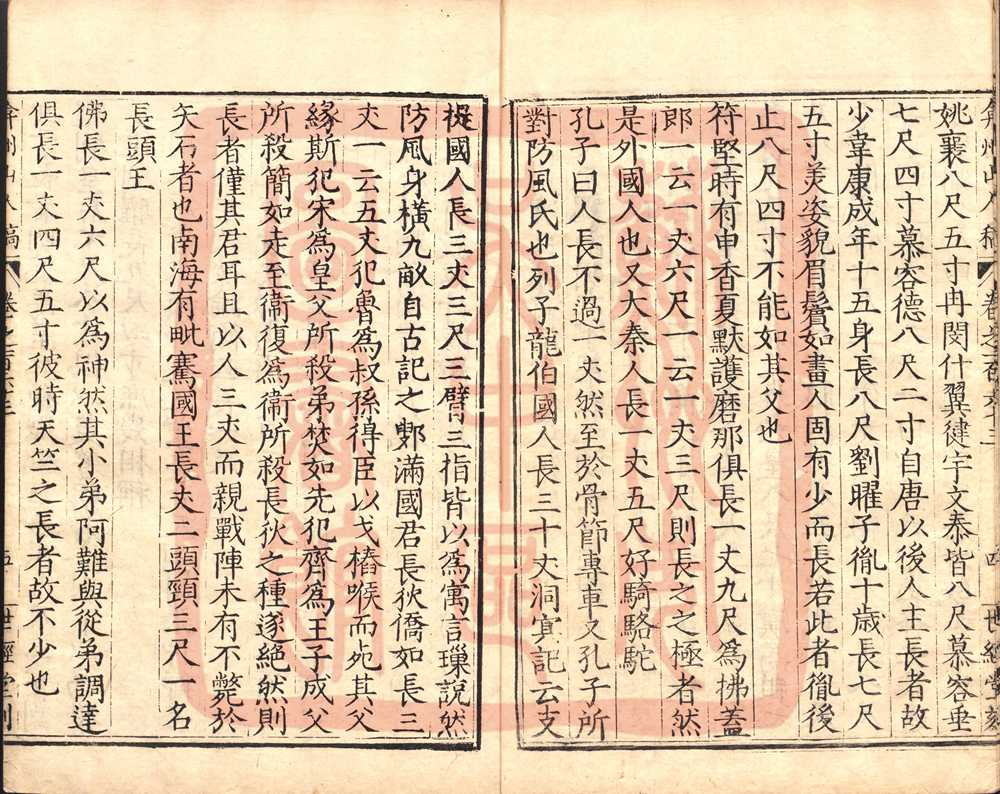 弇州山人稿 卷之一百六十三 四 世經堂刻
姚襄八尺五寸冉閔什翼犍宇文泰皆八尺慕容垂
七尺四寸慕容德八尺二寸自唐以後人主長者故
少韋康成年十五身長八尺劉曜子胤十歲長七尺
五寸美姿貌眉鬢如畫人固有少而長若此者胤後
止八尺四寸不能如其父也
符堅時有申香夏默護磨那俱長一丈九尺為拂蓋
郎一云一丈六尺一云一丈三尺則長之之極者然
是外國人也又大秦人長一丈五尺好騎駱駝
孔子曰人長不過一丈然至於骨節專車又孔子所
對防風氏也列子龍伯國人長三十丈洞冥記云支
提國人長三丈三尺三臂三指皆以為寓言璅說然
防風身橫九畝自古記之鄋滿國君長狄僑如長三
丈一云五丈犯魯為叔孫得臣以戈樁喉而死其父
緣斯犯宋為皇父所殺弟焚如先犯齊為王子成父
所殺簡如走至衛復為衛所殺長狄之種遂絕然則
長者僅其君耳且以人三丈而親戰陣未有不斃於
矢石者也南海有毗騫國王長丈二頭頸三尺一名
長頭王
佛長一丈六尺以為神然其小弟阿難與從弟調達
俱長一丈四尺五寸彼時天竺之長者故不少也
弇州山人稿 卷之一百六十三 五 世經堂刻